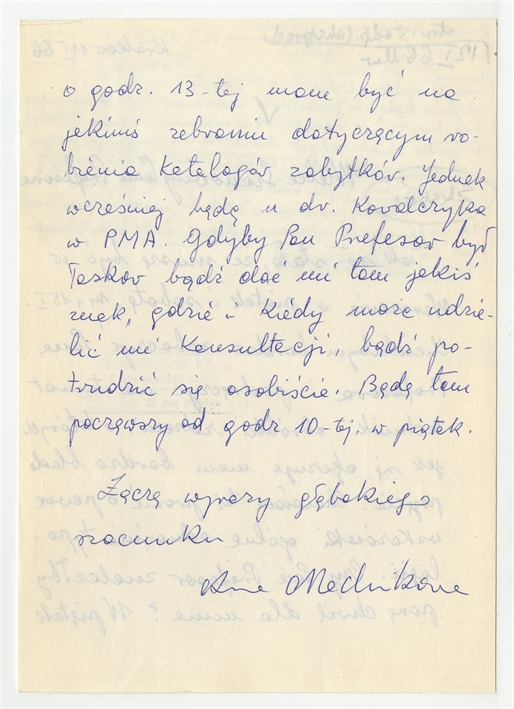 o godz. 13-tej mam być na
jakimś zebraniu dotyczącym ro-
bienia katalogów zabytków. Jednak
wcześniej będę u dr. Kowalczyka
w PMA. Gdyby Pan Profesor był
łaskaw bądź dać mi tam jakiś
znak, gdzie i kiedy może udzie-
lić mi konsultacji, bądź po-
trudzić się osobiście. Będę tam
począwszy od godz 10-tej. w piątek.
Łączę wyrazy głębokiego
szacunku